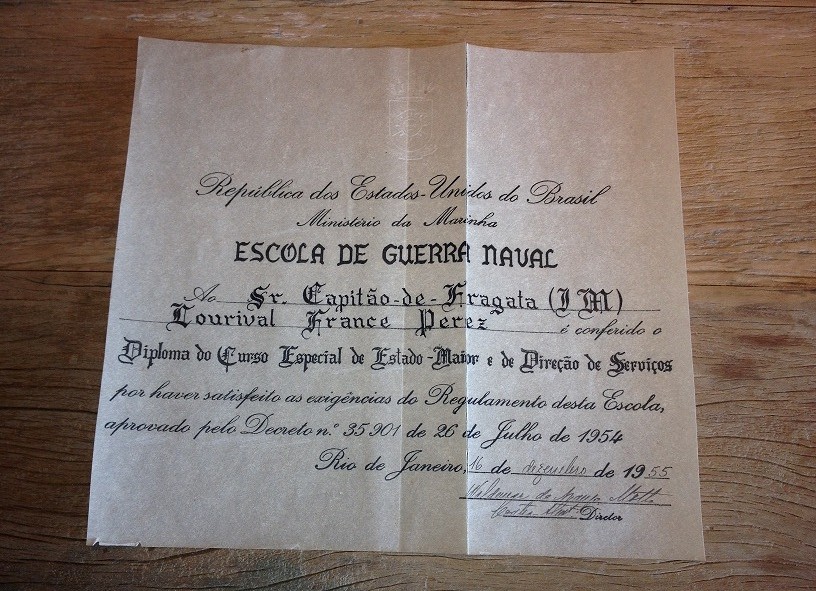 República dos Estados-Unidos do Brasil
Ministério da Marinha
ESCOLA DE GUERRA NAVAL
Ao Sr. Capitão-de-Fragata (IM)
Lourival France Perez é conferido o
Diploma do Curso Especial de Estado-Maior e de Direção de Serviços
por haver satisfeito as exigências do Regulamento desta Escola,
aprovado pelo Decreto n.º 35901 de 26 de Julho de 1954
Rio de Janeiro, 16 de dezembro de 1955
Waldemar de Araujo Motta
Diretor